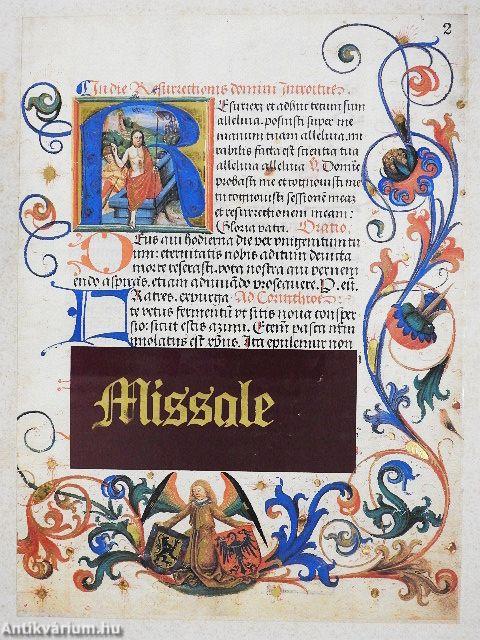 2
In die Resurrectionis domini Introitus.
Resurrexi et adhuc tecum sum
alleluia. posuisti super me
manum tuam alleluia. mi
rabilis facta est scientia tua
alleluia alleluia V. Domine
probasti me et cognouisti me
tu cognouisti sessionē meaz
et resurrectionem meam:
Gloria patri. Oratio.
Deus qui hodierna die per vnigenitum tu
um: eternitatis nobis aditum deuicta
morte reserasti. vota nostra que preueni
endo aspiras, etiam adiuuādo prosequere. P. eū
Fratres. expurga Ad Corinthios:
te vetus fermentū vt sitis noua consper
sio: sicut estis azimi. Etem̄ pasca nr̄m
immolatus est xp̄us. Ita epulemur non
Missale
Antikvárium.hu